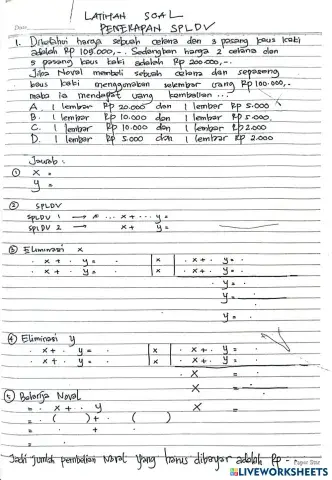 LATIHAN SOAL
PENERAPAN SPLDV
1. Diketahui harga sebuah celana dan 3 pasang kaus kaki
adalah Rp 109.000,-. Sedangkan harga 2 celana dan
5 pasang kaus kaki adalah Rp 200.000,-.
Jika Noval membeli sebuah celana dan sepasang
kaus kaki menggunakan selembar uang Rp 100.000,-
maka ia mendapat uang kembalian ...
A. 1 lembar Rp 20.000 dan 1 lembar Rp 5.000
B. 1 lembar Rp 10.000 dan 1 lembar Rp 5.000
C. 1 lembar Rp 10.000 dan 1 lembar Rp 2.000
D. 1 lembar Rp 5.000 dan 1 lembar Rp 2.000
Jawab :
① x =
y =
② SPLDV
SPLDV 1 → ... x + ... y =
SPLDV 2 → x + y =
③ Eliminasi x
. x + . y = . | x | . x + . y = .
. x + . y = . | x | . x + . y = .
. y = .
y =
y = .
④ Eliminasi y
. x + . y = . | x | . x + . y = .
. x + . y = . | x | . x + . y = .
. x = .
x =
x = .
⑤ Belanja Noval
= . x + . y
= . ( ) + . ( )
= . + .
= .
Jadi jumlah pembelian Noval yang harus dibayar adalah Rp -
LIVEWORKSHEETS